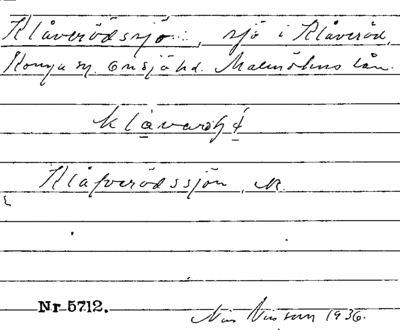 Klåverödssjö, sjö i Klåveröd,
Konga sn. Onsjö hd. Malmöhus län.
Klåfverödssjön, K.
Nr 5712. Nils Nilsson 1936.